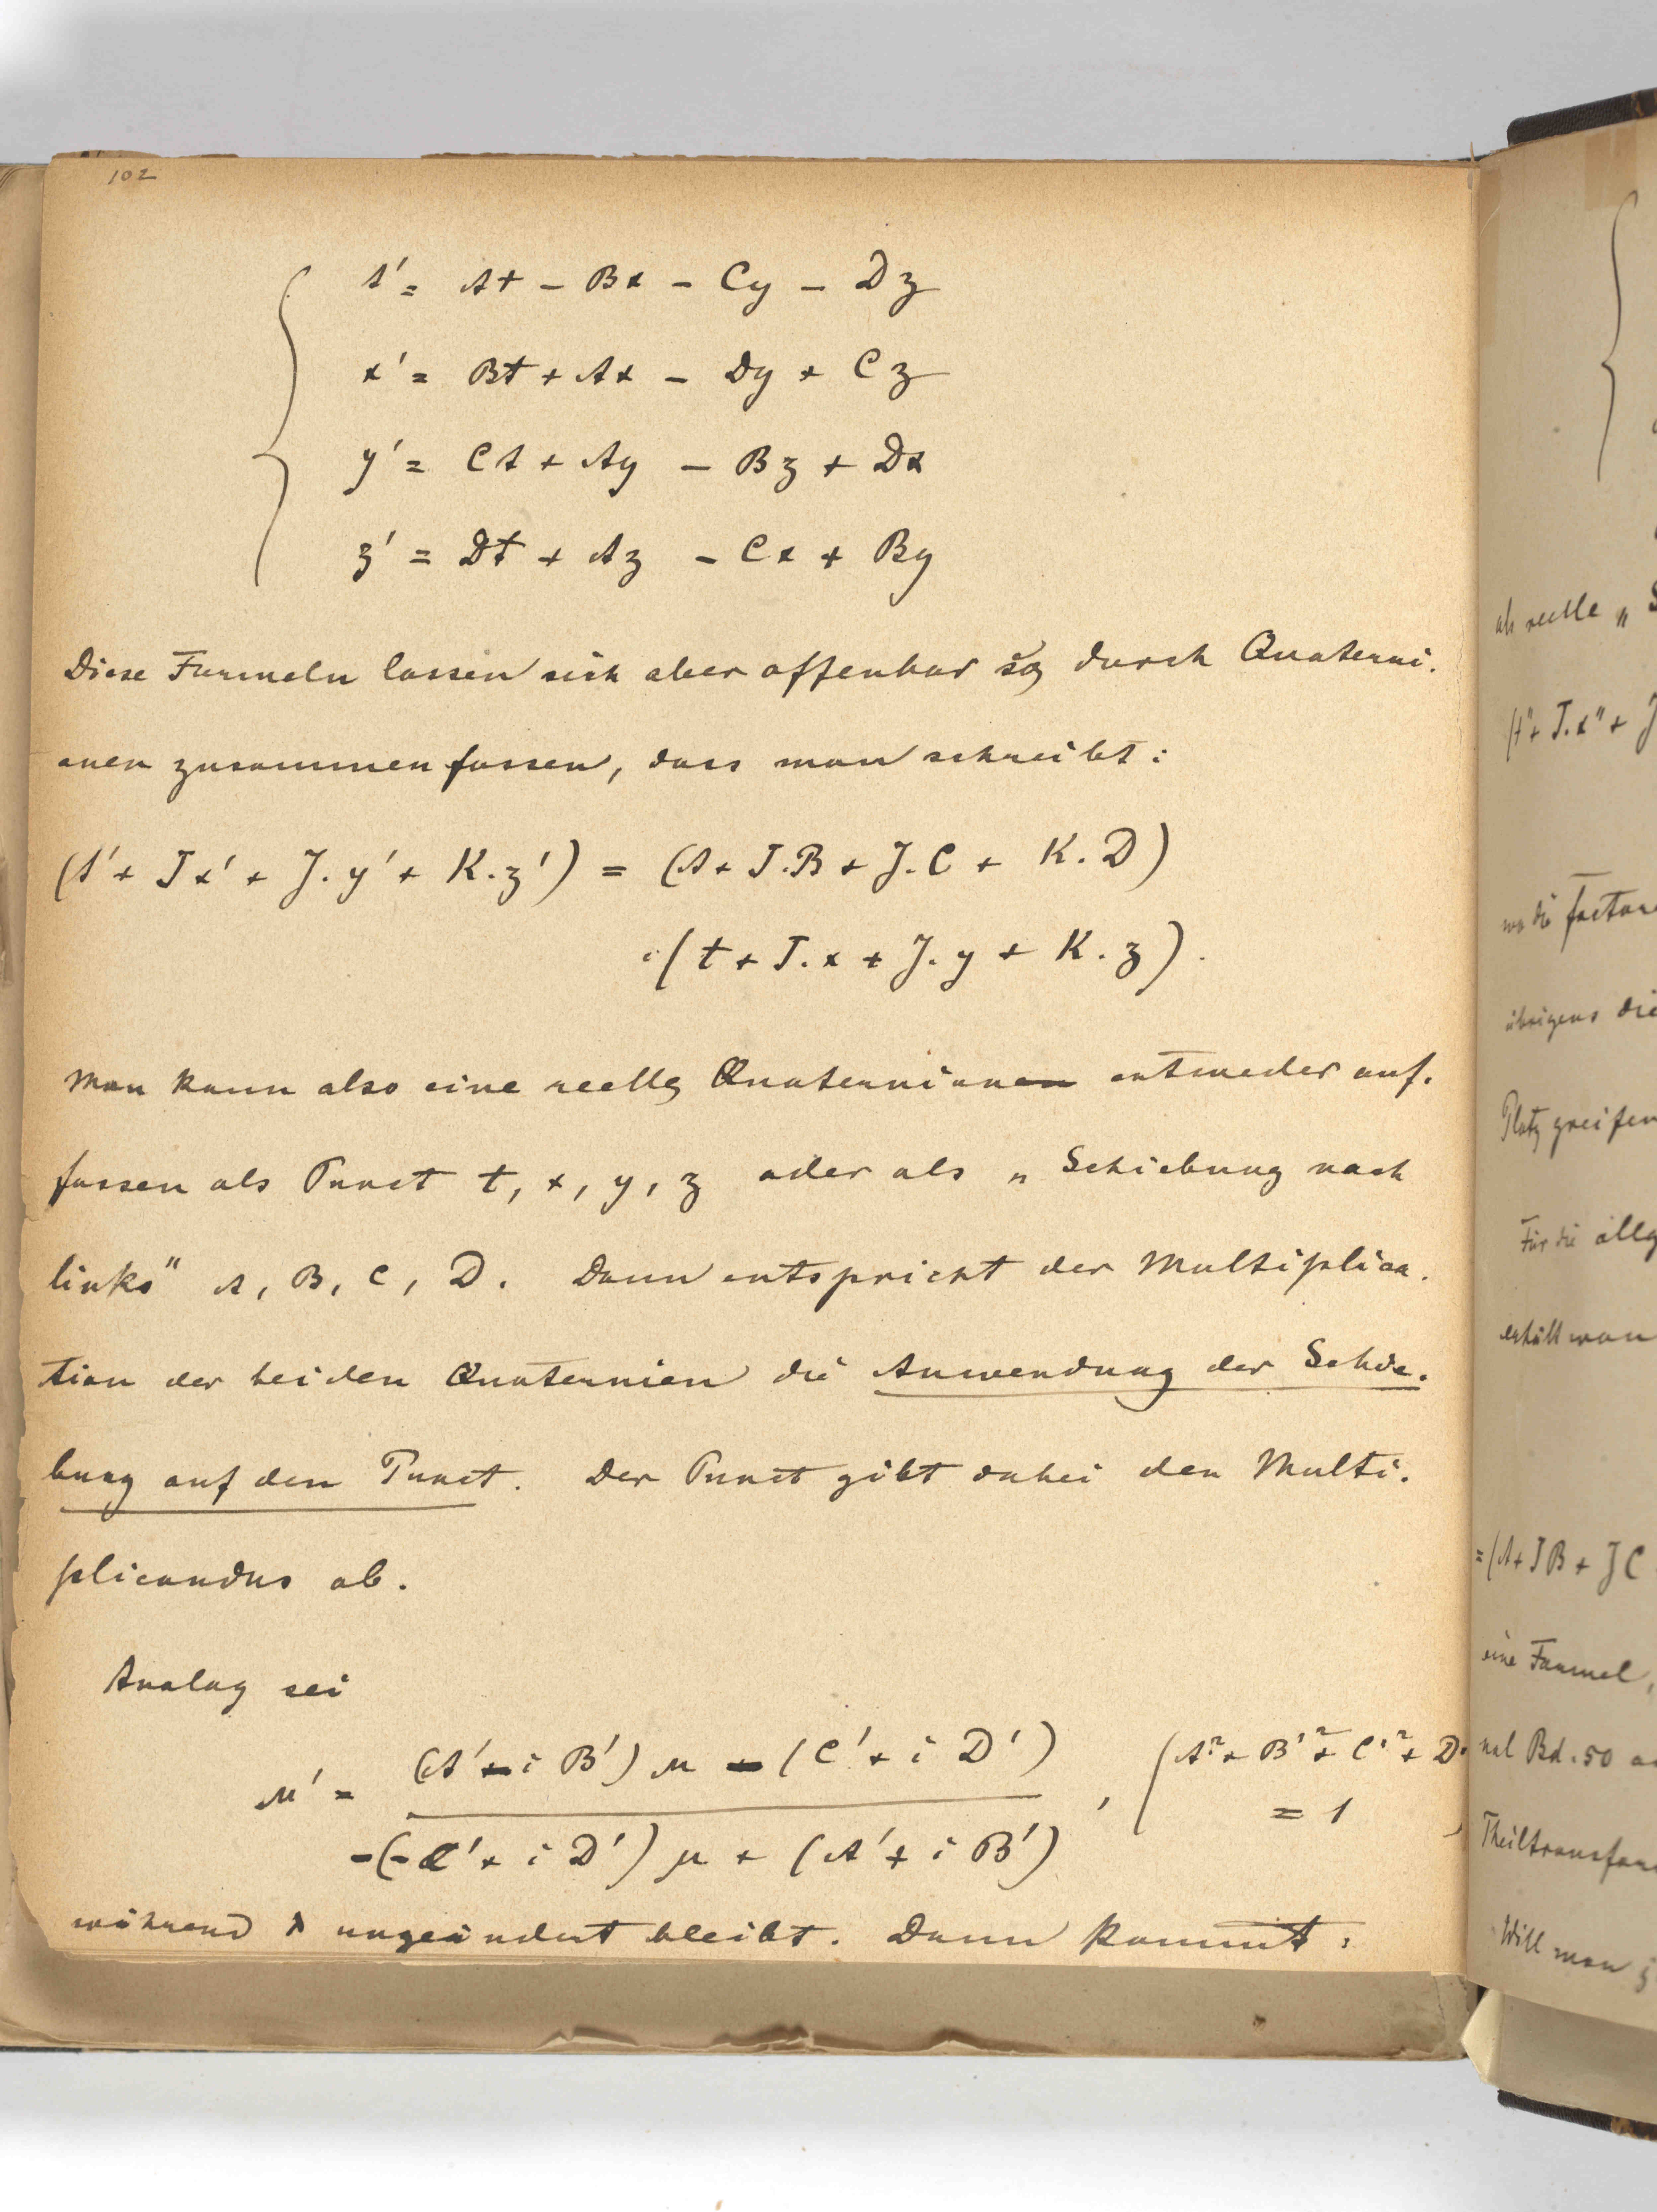 102
t' = At - Bx - Cy - Dz
x' = Bt + Ax - Dy + Cz
y' = Ct + Ay - Bz + Dx
z' = Dt + Az - Cx + By
Diese Formeln lassen sich aber offenbar so durch Quaterni-
onen zusammenfassen, dass man schreibt:
(t' + Ix' + J.y' + K.z') = (A + I.B + J.C + K.D)
.(t + I.x + J.y + K.z).
Man kann also eine reelle Quaternion entweder auf-
fassen als Punct t, x, y, z oder als „Schiebung nach
links" A, B, C, D. Dann entspricht der Multiplica-
tion der beiden Quaternien die Anwendung der Schie-
bung auf den Punct. Der Punct gibt dabei den Multi-
plicandus ab.
Analog sei
μ' = (A' + i B') μ - (C' + i D')
, (A'² + B'² + C'² + D'
= 1
-(-C' + i D') μ + (A' + i B')
während λ ungeändert bleibt. Dann kommt:
als reelle „
(t" + I.x" + J
wo die Factore
übrigens die
Platz greifen
Für die allg
erhält man
= (A + IB + JC
eine Formel,
nal Bd. 50
Theiltransfor
Will man